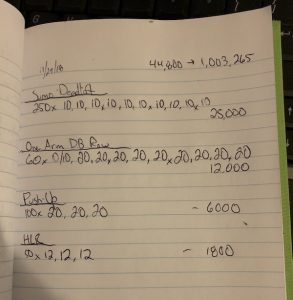 11/29/18
44,800 → 1,003,265
Sumo Deadlift
250x 10, 10, 10x10, 10, 10x10, 10, 10x10
25,000
One Arm DB Row
60x 0/10, 20, 20, 20, 20, 20x20, 20, 20, 20
12,000
Push Up
100x 20, 20, 20 - 6000
HLR
50x12, 12, 12 - 1800